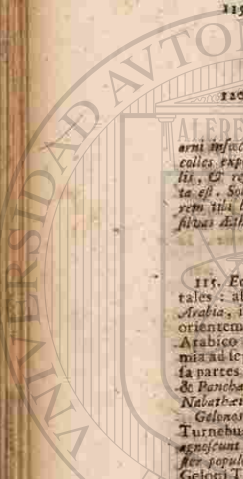 119
120
arni infec
colles exp
lis, & re
ta est. So
rem tibi
silvas Æth
115. Eo
tales : al
Arabia, i
orientem
Arabico
mia ad se
sa partes
& Pancha
Nabathæi
Gelonos
Turnebus
agnoscunt
ster popul
Geloni T